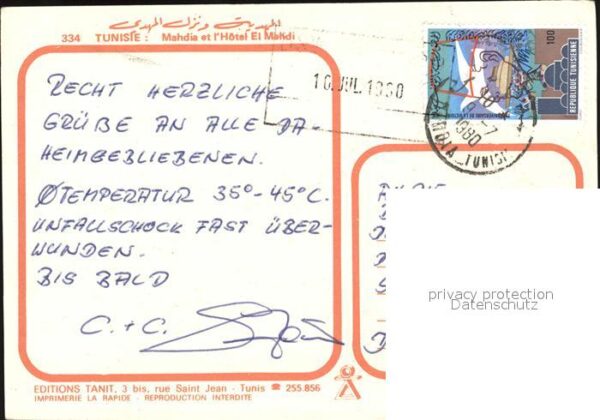 المهدية ونزل المهدي
334 TUNISIE : Mahdia et l'Hôtel El Mahdi
10. JUL. 1980
100
REPUBLIQUE TUNISIENNE
1980
TUNISIE
RECHT HERZLICHE
GRÜßE AN ALLE DA-
HEIMBELIEBENEN.
ØTEMPERATUR 35°-45°C.
UNFALLSCHOCK FAST ÜBER-
WUNDEN.
BIS BALD
C. + C.
privacy protection
Datenschutz
EDITIONS TANIT, 3 bis, rue Saint Jean - Tunis ☎ 255.856
IMPRIMERIE LA RAPIDE - REPRODUCTION INTERDITE